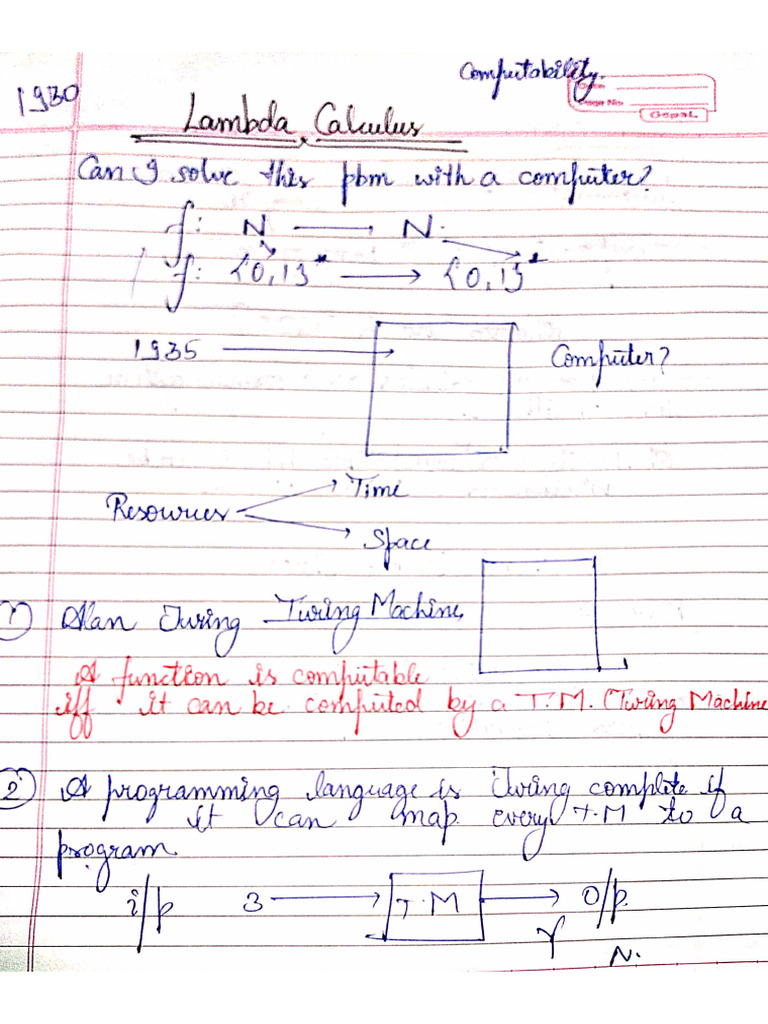 Computability.
1930
Date
Page No.
Gopal
Lambda Calculus
Can I solve this pbm with a computer?
f: N → N.
f: {0,1}* → {0,1}*
1935 → Computer?
Time
Resources
Space
1) Alan Turing Turing Machine
A function is computable
iff it can be computed by a T.M. (Turing Machine
2) A programming language is Turing complete if
it can map every T.M to a
program
i/p 3 → T.M → O/p.
Y N.